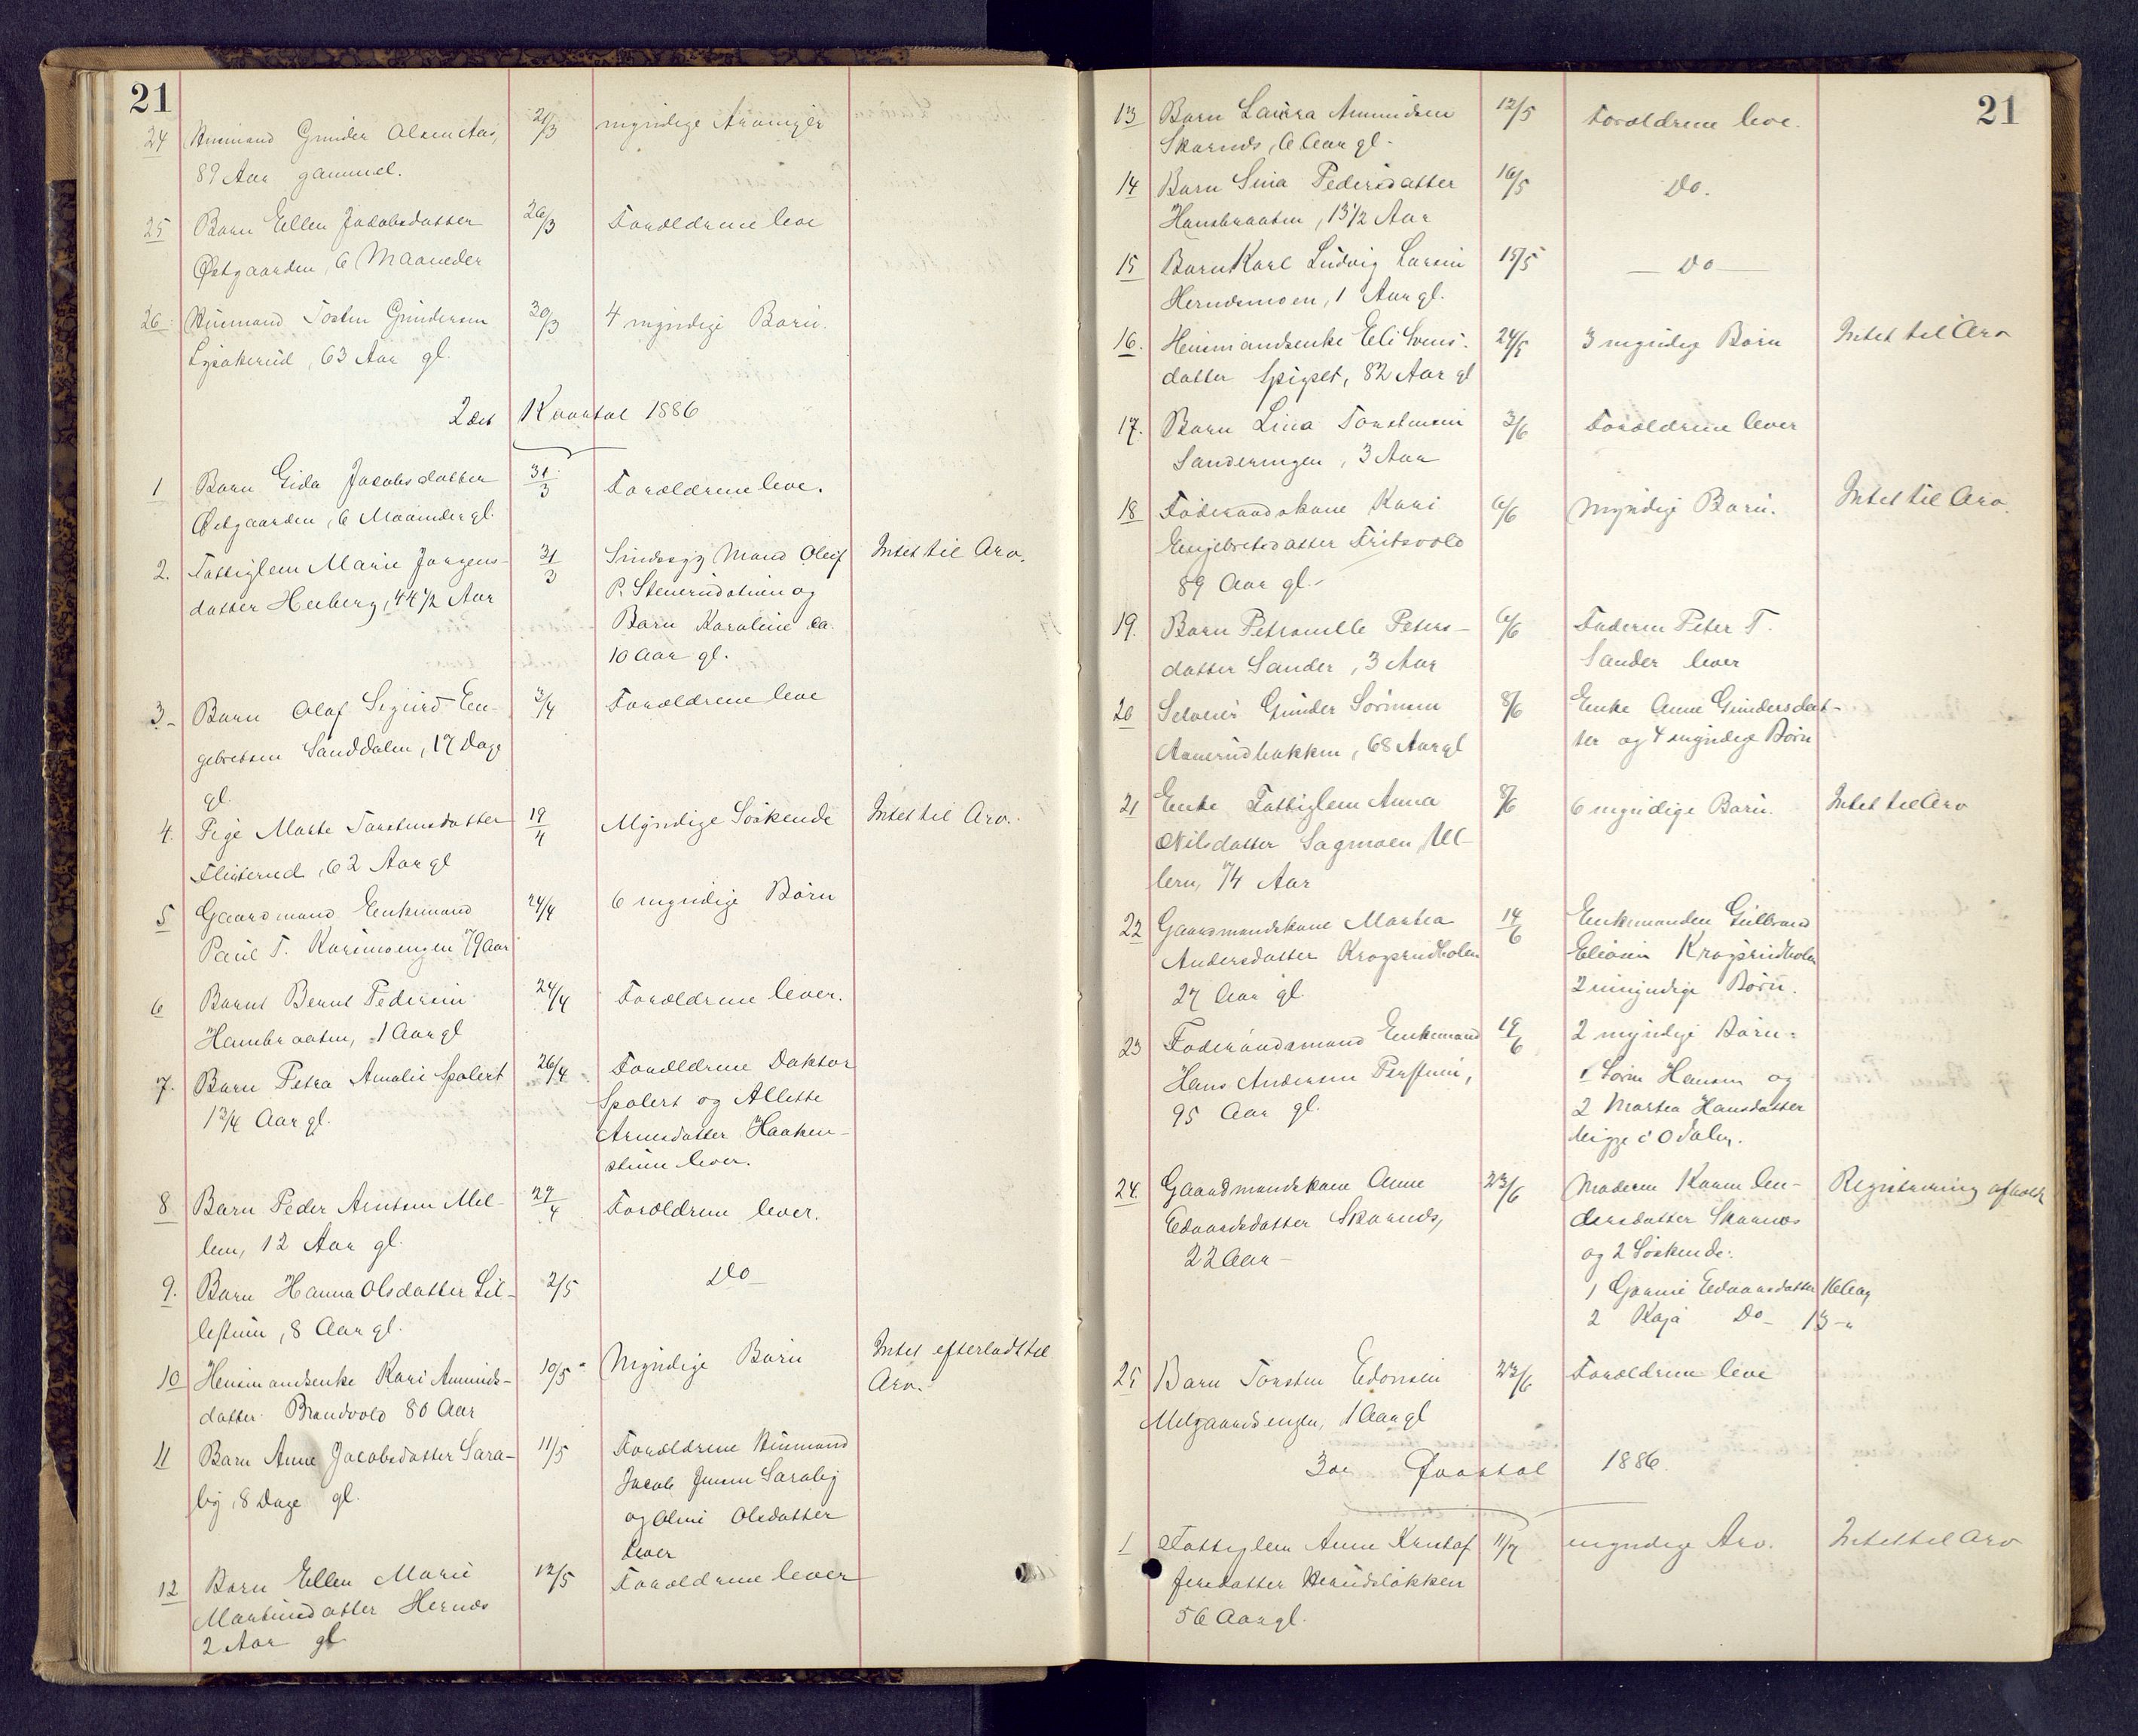 21
24 Huusmand Gunder Olsen Aas, 21/3 myndige Arvinger
89 Aar gammel.
25 Barn Ellen Jacobsdatter 26/3 Forældrene leve
Østgaarden, 6 Maaneder
26 Huusmand Tosten Gundersen 30/3 4 myndige Børn.
Lysakerud, 63 Aar gl.
2det Kvartal 1886
1 Barn Gida Jacobsdatter 31/3 Forældrene leve.
Østgaarden, 6 Maaneder gl.
2. Fattiglem Marie Jørgens- 31/3 Sindssyg Mand Oluf Intet til Arv.
datter Heeberg, 44 1/2 Aar P. Stenerudstuen og
Barn Karoline ca.
10 Aar gl.
3 Barn Olaf Sigurd En- 3/4 Forældrene leve
gebretsen Sanddalen, 17 Dage
gl.
4. Pige Marte Torstensdatter 19/4 Myndige Söskende Intet til Arv.
Flisterud, 62 Aar gl
5 Gaardmand Enkemand 24/4 6 myndige Börn
Paul T. Karimoengen 79 Aar
6 Barnet Bernt Pedersen 24/4 Forældrene lever.
Hansbraaten, 1 Aar gl
7. Barn Petra Amalie Spolert 26/4 Forældrene Doktor
1 3/4 Aar gl. Spolert og Allette
Arnesdatter Haaken-
stuen lever.
8 Barn Peder Arntsen Mel- 27/4 Forældrene lever.
lem, 12 Aar gl.
9. Barn Hanna Olsdatter Lil- 2/5 Do
lestuen, 8 Aar gl.
10 Huusmandsenke Kari Amunds- 10/5 Myndige Børn Intet efterladt til
datter Brandvold 80 Aar Arv.
11 Barn Anne Jacobsdatter Sara- 11/5 Forældrene Husmand
by, 8 Dage gl. Jacob Jensen Saraby
og Oline Olsdatter
lever
12 Barn Ellen Marie 12/5 Forældrene lever
Martinsdatter Hernæs
2 Aar gl
21
13 Barn Laura Amundsen 12/5 Forældrene leve.
Skarnæs, 6 Aar gl.
14 Barn Sina Pedersdatter 16/5 Do.
Hansbraaten, 13 1/2 Aar
15 Barn Karl Ludvig Larsen 15/5 Do
Hernæsmoen, 1 Aar gl.
16. Huusmandsenke Eli Svens- 24/5 3 myndige Børn Intet til Arv
datter Spigset, 82 Aar gl
17. Barn Lina Torstensen 3/6 Forældrene lever
Sanderengen, 3 Aar
18 Föderaadskone Kari 6/6 Myndige Børn. Intet til Arv.
Engebretsdatter Fritsvold
89 Aar gl.
19. Barn Petronelle Peters- 6/6 Faderen Peter T.
datter Sander, 3 Aar Sander lever
20 Selveier Gunder Sörensen 8/6 Enke Anne Gundersdat-
Aanerudbakken, 68 Aar gl ter og 4 myndige Börn
21 Enke Fattiglem Anna 8/6 6 myndige Børn. Intet til Arv
Nilsdatter Sagmoen, Ul-
lern, 74 Aar
22 Gaardmandskone Martea 14/6 Enkemanden Gulbrand
Andersdatter Krogsrudholen Eliasen Krogsrudholen
27 Aar gl. 2 umyndige Börn.
23 Föderaadsmand Enkemand 19/6 2 myndige Børn:
Hans Andersen Perstuen, 1 Sören Hansen og
95 Aar gl. 2 Martea Hansdatter
begge i Odalen.
24. Gaardmandskone Anne 23/6 Moderen Karen An- Registrering afholdt
Edvardsdatter Skarnæs, dersdatter Skarnæs
22 Aar og 2 Söskende:
1 Gunnie Edvardsdatter 16 Aar
2 Kaja Do 13 "
25 Barn Torsten Edvinsen 23/6 Forældrene leve
Melgaardsengen, 1 Aar gl
3die Qvartal 1886.
1 Fattiglem Anne Kristof 11/7 myndige Arv. Intet til Arv
fersdatter Herudsløkken
56 Aar gl.